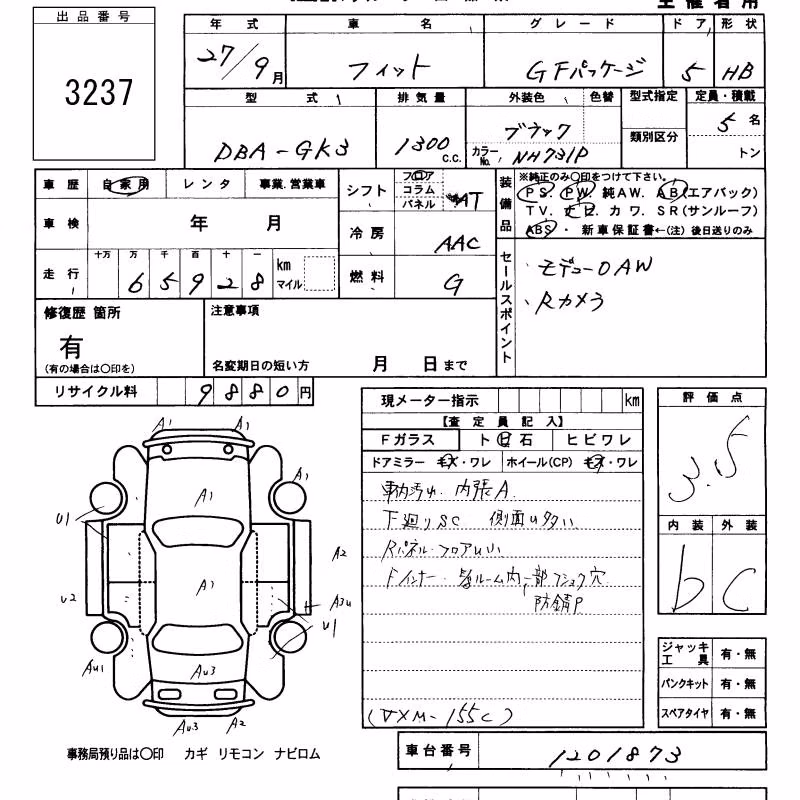 出品番号
3237
年式 車名 グレード ドア 形状
27/9月 フィット GFパッケージ 5 HB
型式 排気量 外装色 色替 型式指定 定員・積載
DBA-GK3 1300 c.c. ブラック 類別区分 5名
カラーNo. NH731P トン
車歴 自家用 レンタ 事業.営業車
車検 年 月
走行 十万 万 千 百 十 一
65928 km マイル
シフト フロア コラム パネル AT
冷房 AAC
燃料 G
装備品
※純正のみ〇印をつけて下さい。
PS. PW. 純AW. AB(エアバック)
TV. ナビ. カワ. SR(サンルーフ)
ABS・新車保証書←(注)後日送りのみ
セールスポイント
・モデューロAW
・Rカメラ
修復歴 箇所
有
(有の場合は〇印を)
注意事項
名変期日の短い方 月 日まで
リサイクル料 9880円
現メーター指示 km
【査定員記入】
Fガラス ト日石 ヒビワレ
ドアミラー キズ・ワレ ホイール(CP) キズ・ワレ
車内汚れ. 内張A
下廻りSC 側面U多い
Rパネル.フロアU小
防錆P
(VXM-155C)
評価点
3.5
内装 外装
b C
ジャッキ工具 有・無
パンクキット 有・無
スペアタイヤ 有・無
A1 A1
A1 A1
U1
A2
A1
U2 A3U
U1
AU1 AU3
AU3 A2
事務局預り品は〇印 カギ リモコン ナビロム
車台番号 1201873